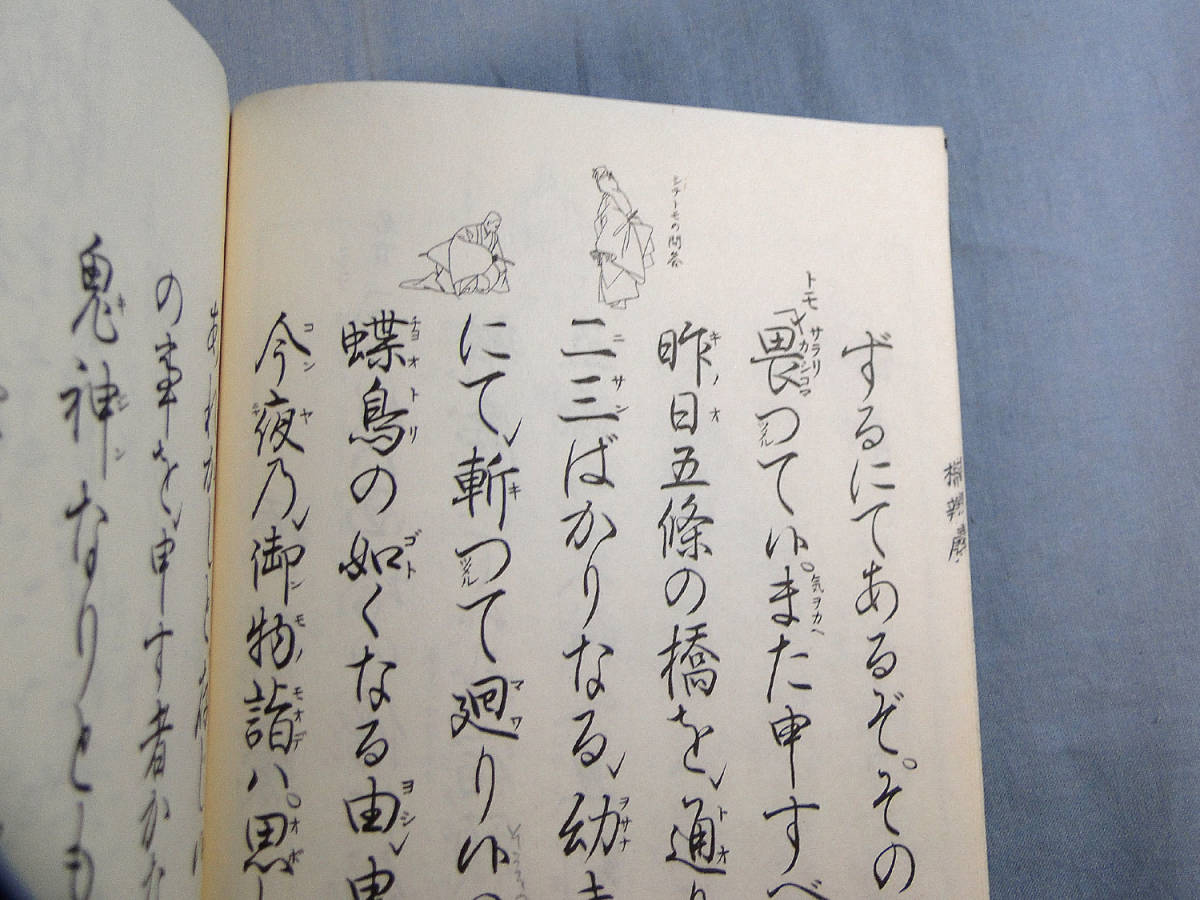 シテトモの問答
橋辨慶
ずるにてあるぞ。その
トモ「畏つて候。また申すべ
昨日五條の橋を、通り
二三ばかりなる、幼き
にて、斬つて廻り候
蝶鳥の如くなる由、申
今夜乃、御物詣ハ。思し
の事を、申す者かな
鬼神なりとも